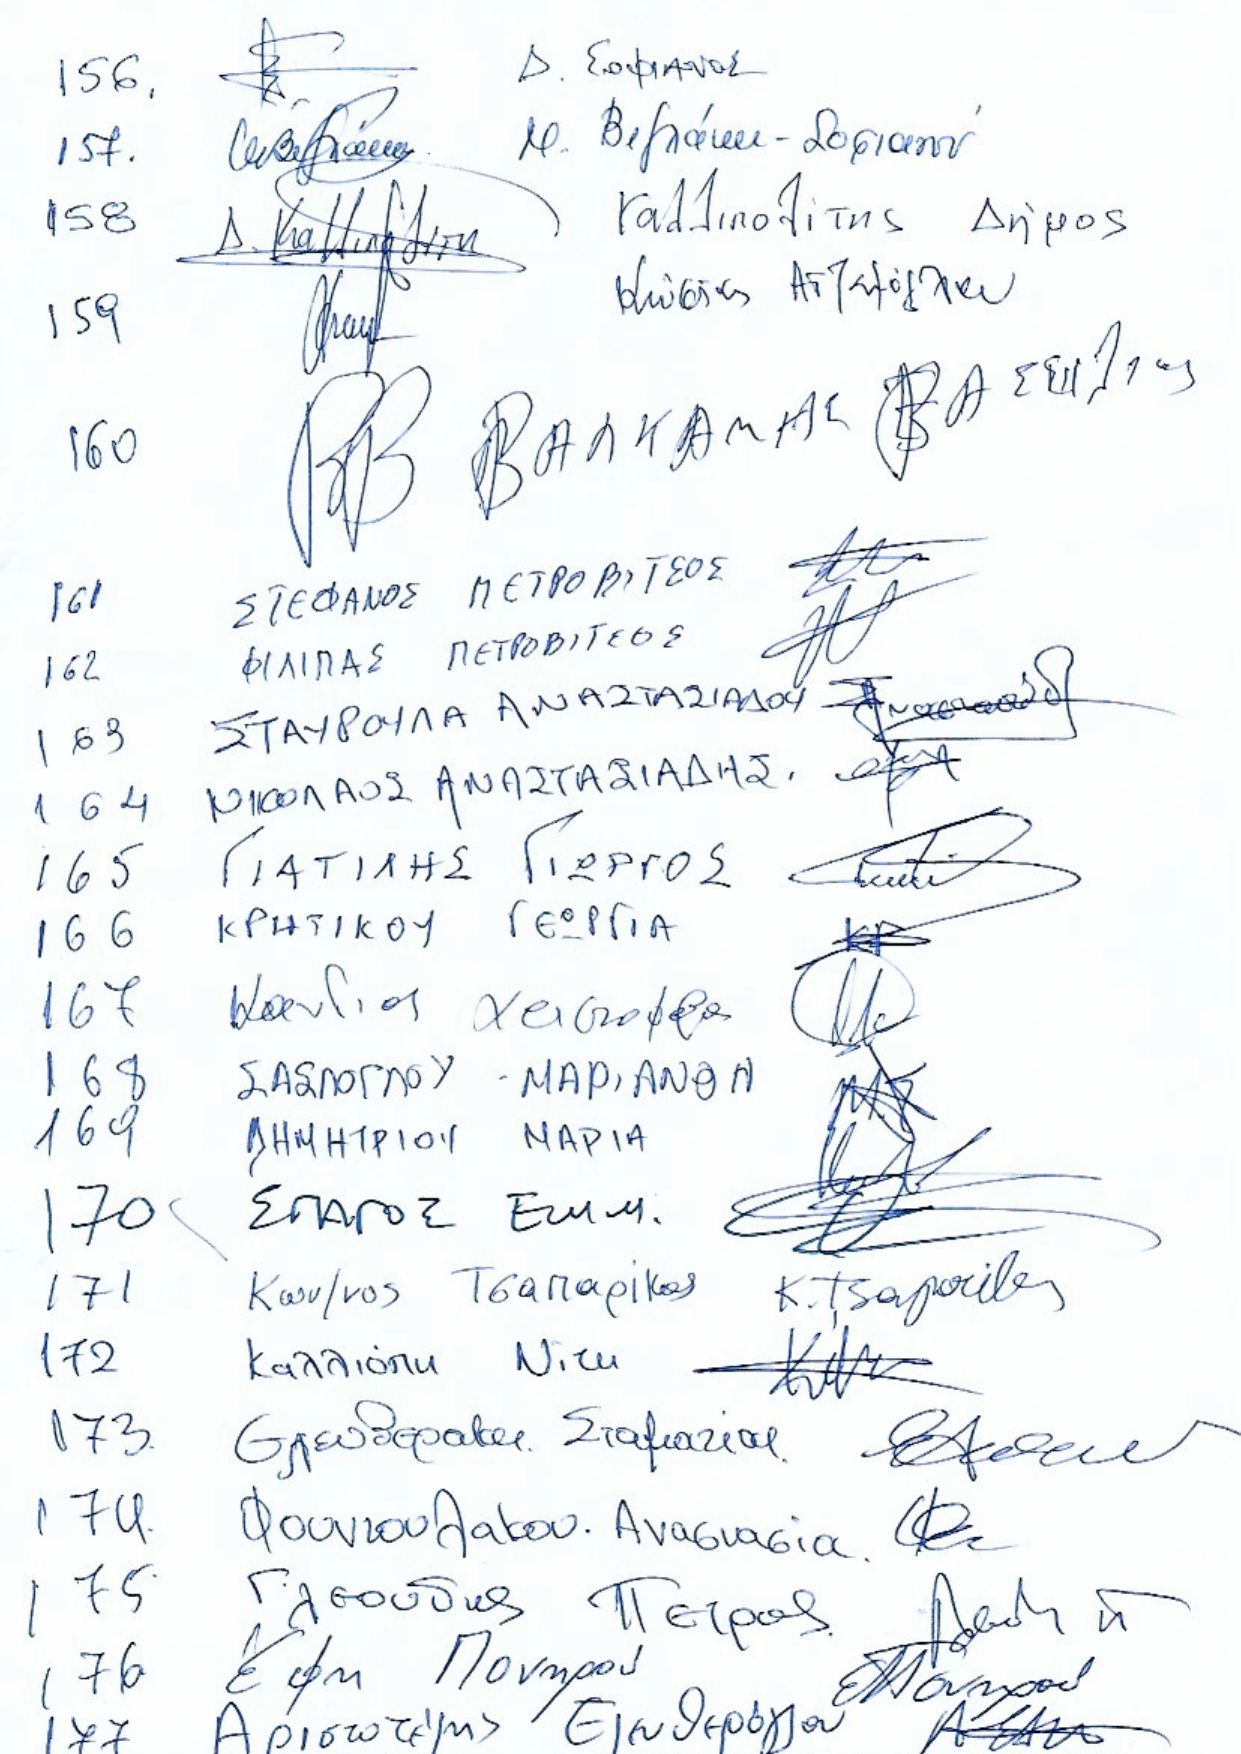 156. Δ. Σοφιανος
157. Μ. Βεζλάκη - Σοφιανού
158 Δ. Καλλιπολίτης Καλλιπολίτης Δήμος
159 Κώστας
160 ΒΒ ΒΑΛΚΑΝΑΣ ΒΑΣΙΛΗΣ
161 ΣΤΕΦΑΝΟΣ ΠΕΤΡΟΒΙΤΣΟΣ
162 ΦΙΛΙΠΑΣ ΠΕΤΡΟΒΙΤΣΟΣ
163 ΣΤΑΥΡΟΥΛΑ ΑΝΑΣΤΑΣΙΑΔΟΥ
164 ΝΙΚΟΛΑΟΣ ΑΝΑΣΤΑΣΙΑΔΗΣ.
165 ΓΙΑΤΙΛΗΣ ΓΙΩΡΓΟΣ
166 ΚΡΗΤΙΚΟΥ ΓΕΩΡΓΙΑ ΚΡ
167 Χριστοφόρος
168 ΣΑΣΛΟΓΛΟΥ - ΜΑΡΙΑΝΘΗ Μ.Σ
169 ΔΗΜΗΤΡΙΟΥ ΜΑΡΙΑ
170 ΣΠΑΓΟΣ Εμμ.
171 Κων/νος Τσαπαρίκος
172 Καλλιόπη Νίτη
173. Ελευθεράκης Σταμάτιος
174. Φουντουλάκου. Αναστασία.
175 Γλεούδης Πέτρος
176 Έφη Πονηρού Πονηρού
177 Αριστοτέλης Ελευθερόγλου